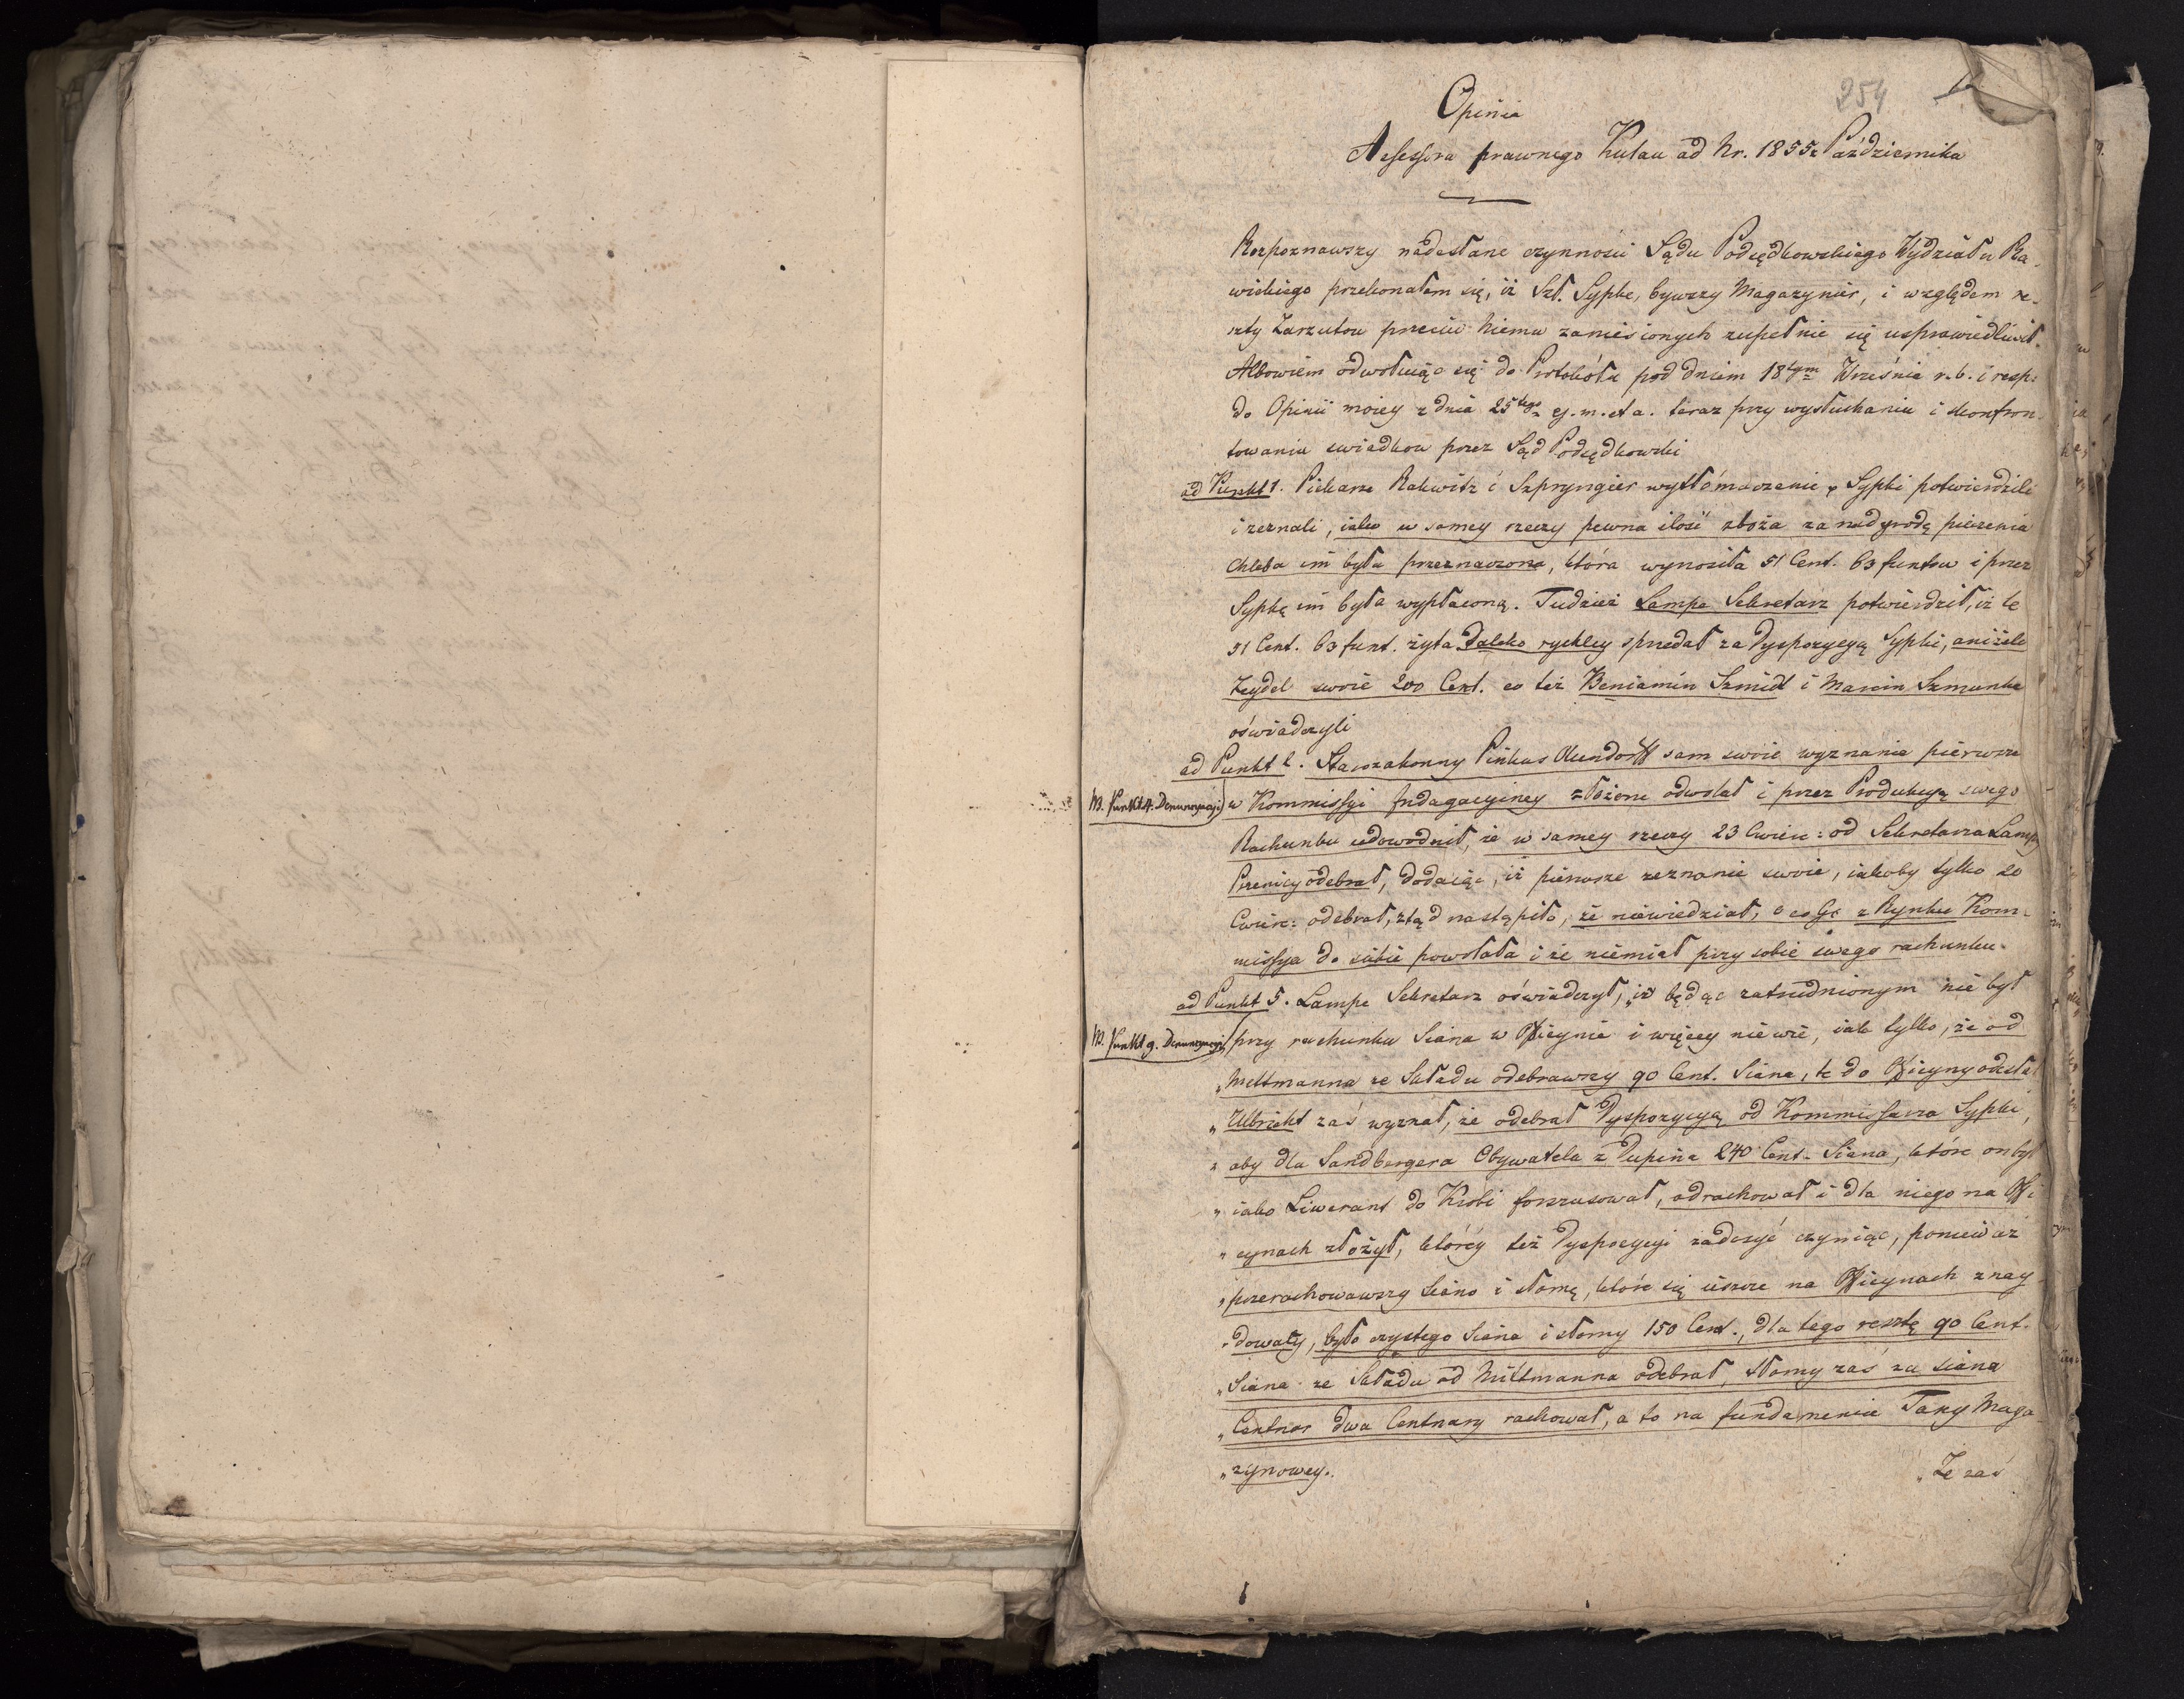 254
Opinia
Assessora prawnego Kulau ad Nr. 1855 z Października
Rozpoznawszy nadesłane czynności Sądu Podsędkowskiego Wydziału Ra-
wickiego przekonałem się, iż Szt. Sypke, bywszy Magazynier, i względem re-
szty Zarzutou przeciw Niemu zaniesionych zupełnie się usprawiedliwił.
Albowiem odwołuiąc się do Protokółu pod dniem 18tym Września r. b. i resp:
do Opinii moiey z dnia 25tego ej. m. et a. teraz przy wysłuchaniu i skonfron-
towaniu swiadkou przez Sąd Podsędkowski
ad Punkt 1. Piekarze Rakwitz i Szpryngier wytłómaczenie Sypki potwierdzili
i zeznali, iako w samey rzeczy pewna ilość zboża za nadgrodę pieczenia
Chleba im była przeznaczona, która wynosiła 51 Cent. 63 funtow i przez
Sypkę im była wypłaconą. Tudzież Lampe Sekretarz potwierdził, iż te
51 Cent. 63 funt. żyta daleko rychley sprzedał za Dyspozycyą Sypki, aniżeli
Zeydel swoie 200 Cent. co też Beniamin Szmidt i Marcin Szmunke
oświadczyli
ad Punkt 2. Starozakonny Pinkus Kundorff sam swoie wyznanie pierwsze
Punkt 4. Denuncyacji w Kommissyi Indagacyiney złożone odwołał i przez Produkcyą swego
Rachunku udowodnił, że w samey rzeczy 23 Cwierc: od Sekretarza Lampy
Pszenicy odebrał, dodaiąc, iż pierwsze zeznanie swoie, iakoby tylko 20
Cwierc: odebrał, ztąd nastąpiło, że niewiedział, o co Go z Rynku Kom-
missya do siebie powołała i że niemiał przy sobie swego rachunku.
ad Punkt 5. Lampe Sekretarz oświadczył, „iż będąc zatrudnionym nie był
Punkt 9. Denuncyacji przy rachunku Siana w Officynie i więcey nie wie, iak tylko, że od
„Mittmanna ze Składu odebrawszy 90 Cent. Siana, te do Officyny odesłał
„Ulbricht zaś wyznał, że odebrał Dyspozycyą od Kommissarza Sypki,
„aby dla Sandbergera Obywatela z Dupina 240 Cent. Siana, które on był
„iako Liwerant do Krobi forszusował, odrachował i dla niego na Offi-
„cynach złożył, którey też Dyspozycyi zadosyć czyniąc, ponieważ
„przerachowawszy Siano i słomę, które się ieszcze na Officynach znay-
„dowały, było czystego Siana i słomy 150 Cent., dla tego resztę 90 Cent.
„Siana ze Składu od Mittmanna odebrał, słomy zaś za siana
„Centnar dwa Centnary rachował, a to na fundamencie Taxy Maga-
„zynowey.
„Że zaś